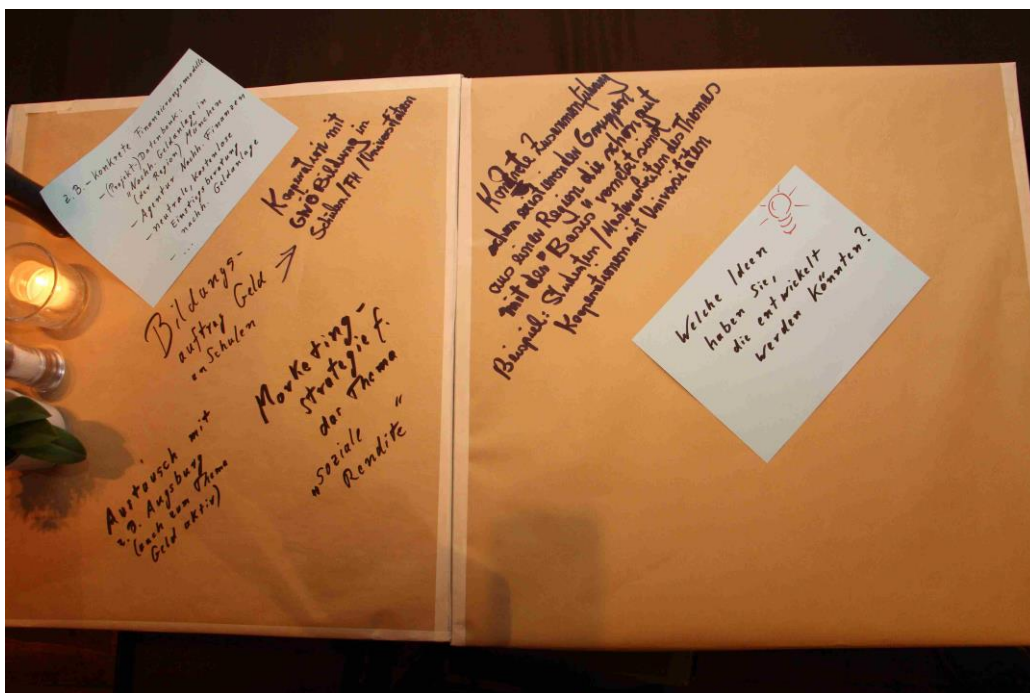 z.B. - Konkrete Finanzierungsmodelle
- (Projekt-)Datenbank:
"Nachh. Geldanlage in
(der Region) München
- Agentur Nachh. Finanzen
- neutrale, kostenlose
Einstiegsberatung
nachh. Geldanlage
- ...
Kooperation mit
Bildung in
Schulen/FH/Universitäten
Bildungs-
auftrag Geld >
an Schulen
Marketing-
strategie f.
das Thema
"soziale
Rendite"
Austausch mit
z.B. Augsburg
(auch zum Thema
Geld aktiv)
Konkrete Zusammenführung
schon existierender
aus einer Region die schon gut
mit der "Basis" vernetzt sind
Beispiel: Studenten / Masterarbeiten des Themas
Kooperationen mit Universitäten
Welche Ideen
haben Sie,
die entwickelt
werden könnten?